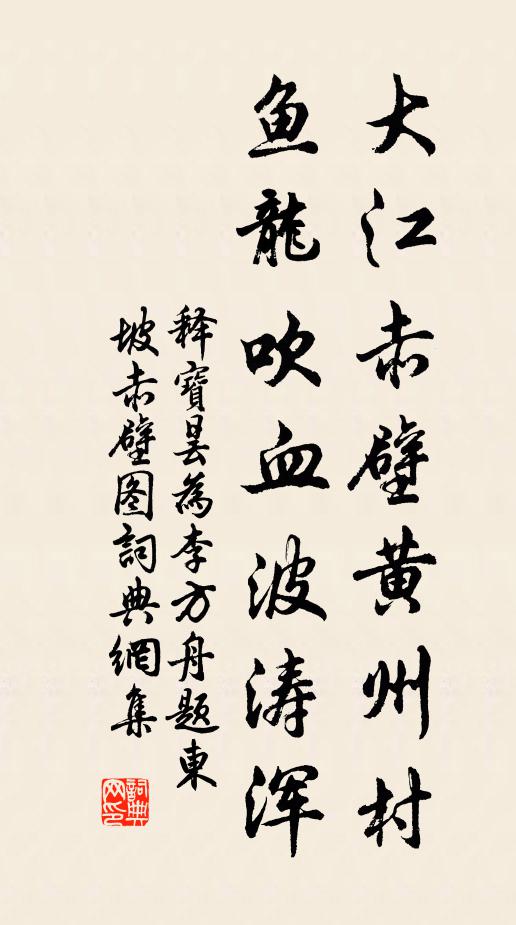 大江赤壁黄州村
鱼龍吹血波涛浑
释寶昙為李方舟题東
坡赤壁图詞典網集
詞典网印